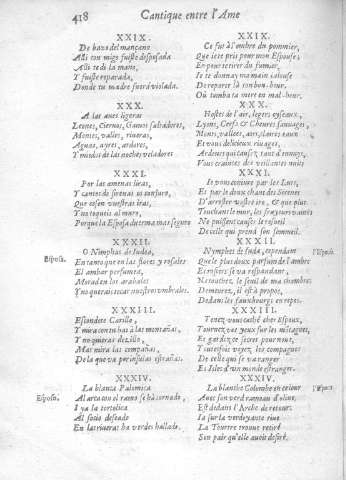 418 Cantique entre l'Ame
XXIX.
De baxo del mançano
Alli con migo fuiste desposada
Alli te di la mano,
Y fuiste reparada,
Donde tu madre fuera violada.
XXX.
A las aues ligeras
Leones, Cieruos, Gamos saltadores,
Montes, valles, riueras,
Aguas, ayres, ardores,
Y miedos de las noches veladores
XXXI.
Por las amenas liras,
Y canto de sirenas os conjuro,
Que cessen vuestras iras,
Y no toqueis al muro,
Porque la Esposa duerma mas seguro
XXXII.
Esposa.
O Nimphas de Iudea,
En tanto que en las flores y rosales
El ambar perfumea,
Morad en los arabales
Y no querais tocar nuestros umbrales.
XXXIII.
Escondete Carillo,
Y mira con tu haz à las montañas,
Y no quieras dezillo,
Mas mira las compañas,
De la que va por insulas estrañas.
XXXIV.
Esposo.
La blanca Palomica
Al arca con el ramo se hà tornado,
I ya la tortolica
Al socio deseado
En las riueras ha verdes hallado.
XXIX.
Ce fut à l'ombre du pommier,
Que ie te pris pour mon Espouse;
En pour te tirer du fumier,
Ie te donnay ma main
De reparer là ton bon-heur,
Où tomba ta mere en mal-heur.
XXX.
Hostes de l'air, legers oyseaux,
Lyons, Cerfs & Cheures sauuages,
Monts, vallées, airs, claires eaux
Et vous delicieux riuages,
Ardeurs qui causez tant d'ennuys,
Vous craintes des veillantes nuits
XXXI.
Ie vous coniure par les Luts,
Et par le doux chant des Sirenes
D'arrester vostre ire, & que plus
Touchant le mur, les frayeurs vaines
Ne puissent causer le resueil
De celle qui prend son sommeil.
XXXII.
l'Espouse.
Nymphes de Iudée, cependant
Que le plus doux parfum de l'ambre
Es rosiers se va respandant,
Ne touchez, le seuil de ma chambre
Demeurez, il est à propos,
Dedans les fauxbourgs en repos.
XXXIII.
Tenez vous caché cher Espoux,
Tournez vos yeux sur les montagnes,
Et gardez ce secret pour nous,
Voyez les compagnes
De celle qui se va ranger
Es Isles d'un monde estranger.
XXXIV.
l'Espoux.
La blanche Colombe en ce iour
Auec son verd rameau d'oliue,
Est dedans l'Arche de retour.
Ia sur la verdoyante riue
La Tourtre trouue retiré
Son pair qu'elle auoit desiré.